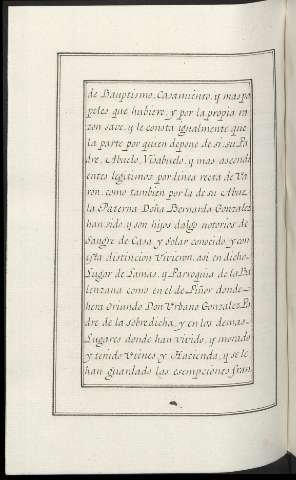 de Bauptismo, Casamiento, y mas pa
peles que hubiere, y por la propia ra
zon save, y le consta igualmente que
la parte por quien depone de si, su Pa
dre, Abuelo, Visabuelo, y mas ascendi
entes legitimos por linea recta de Va
ron, como tambien por la de su Abue
la Paterna Doña Bernarda Gonzalez
han sido, y son hijos dalgo notorios de
Sangre de Casa y Solar conocido y con
esta distincion Vivieron, asi en dicho
Lugar de Lamas, y Parroquia de la
lenzana como en el de Piñor donde
hera Oriundo Don Urbano Gonzalez Pa
dre de la sobredicha, y en los demas
Lugares donde han vivido, y morado
y tenido Vienes y Hacienda, y se le
han guardado las esempciones fran